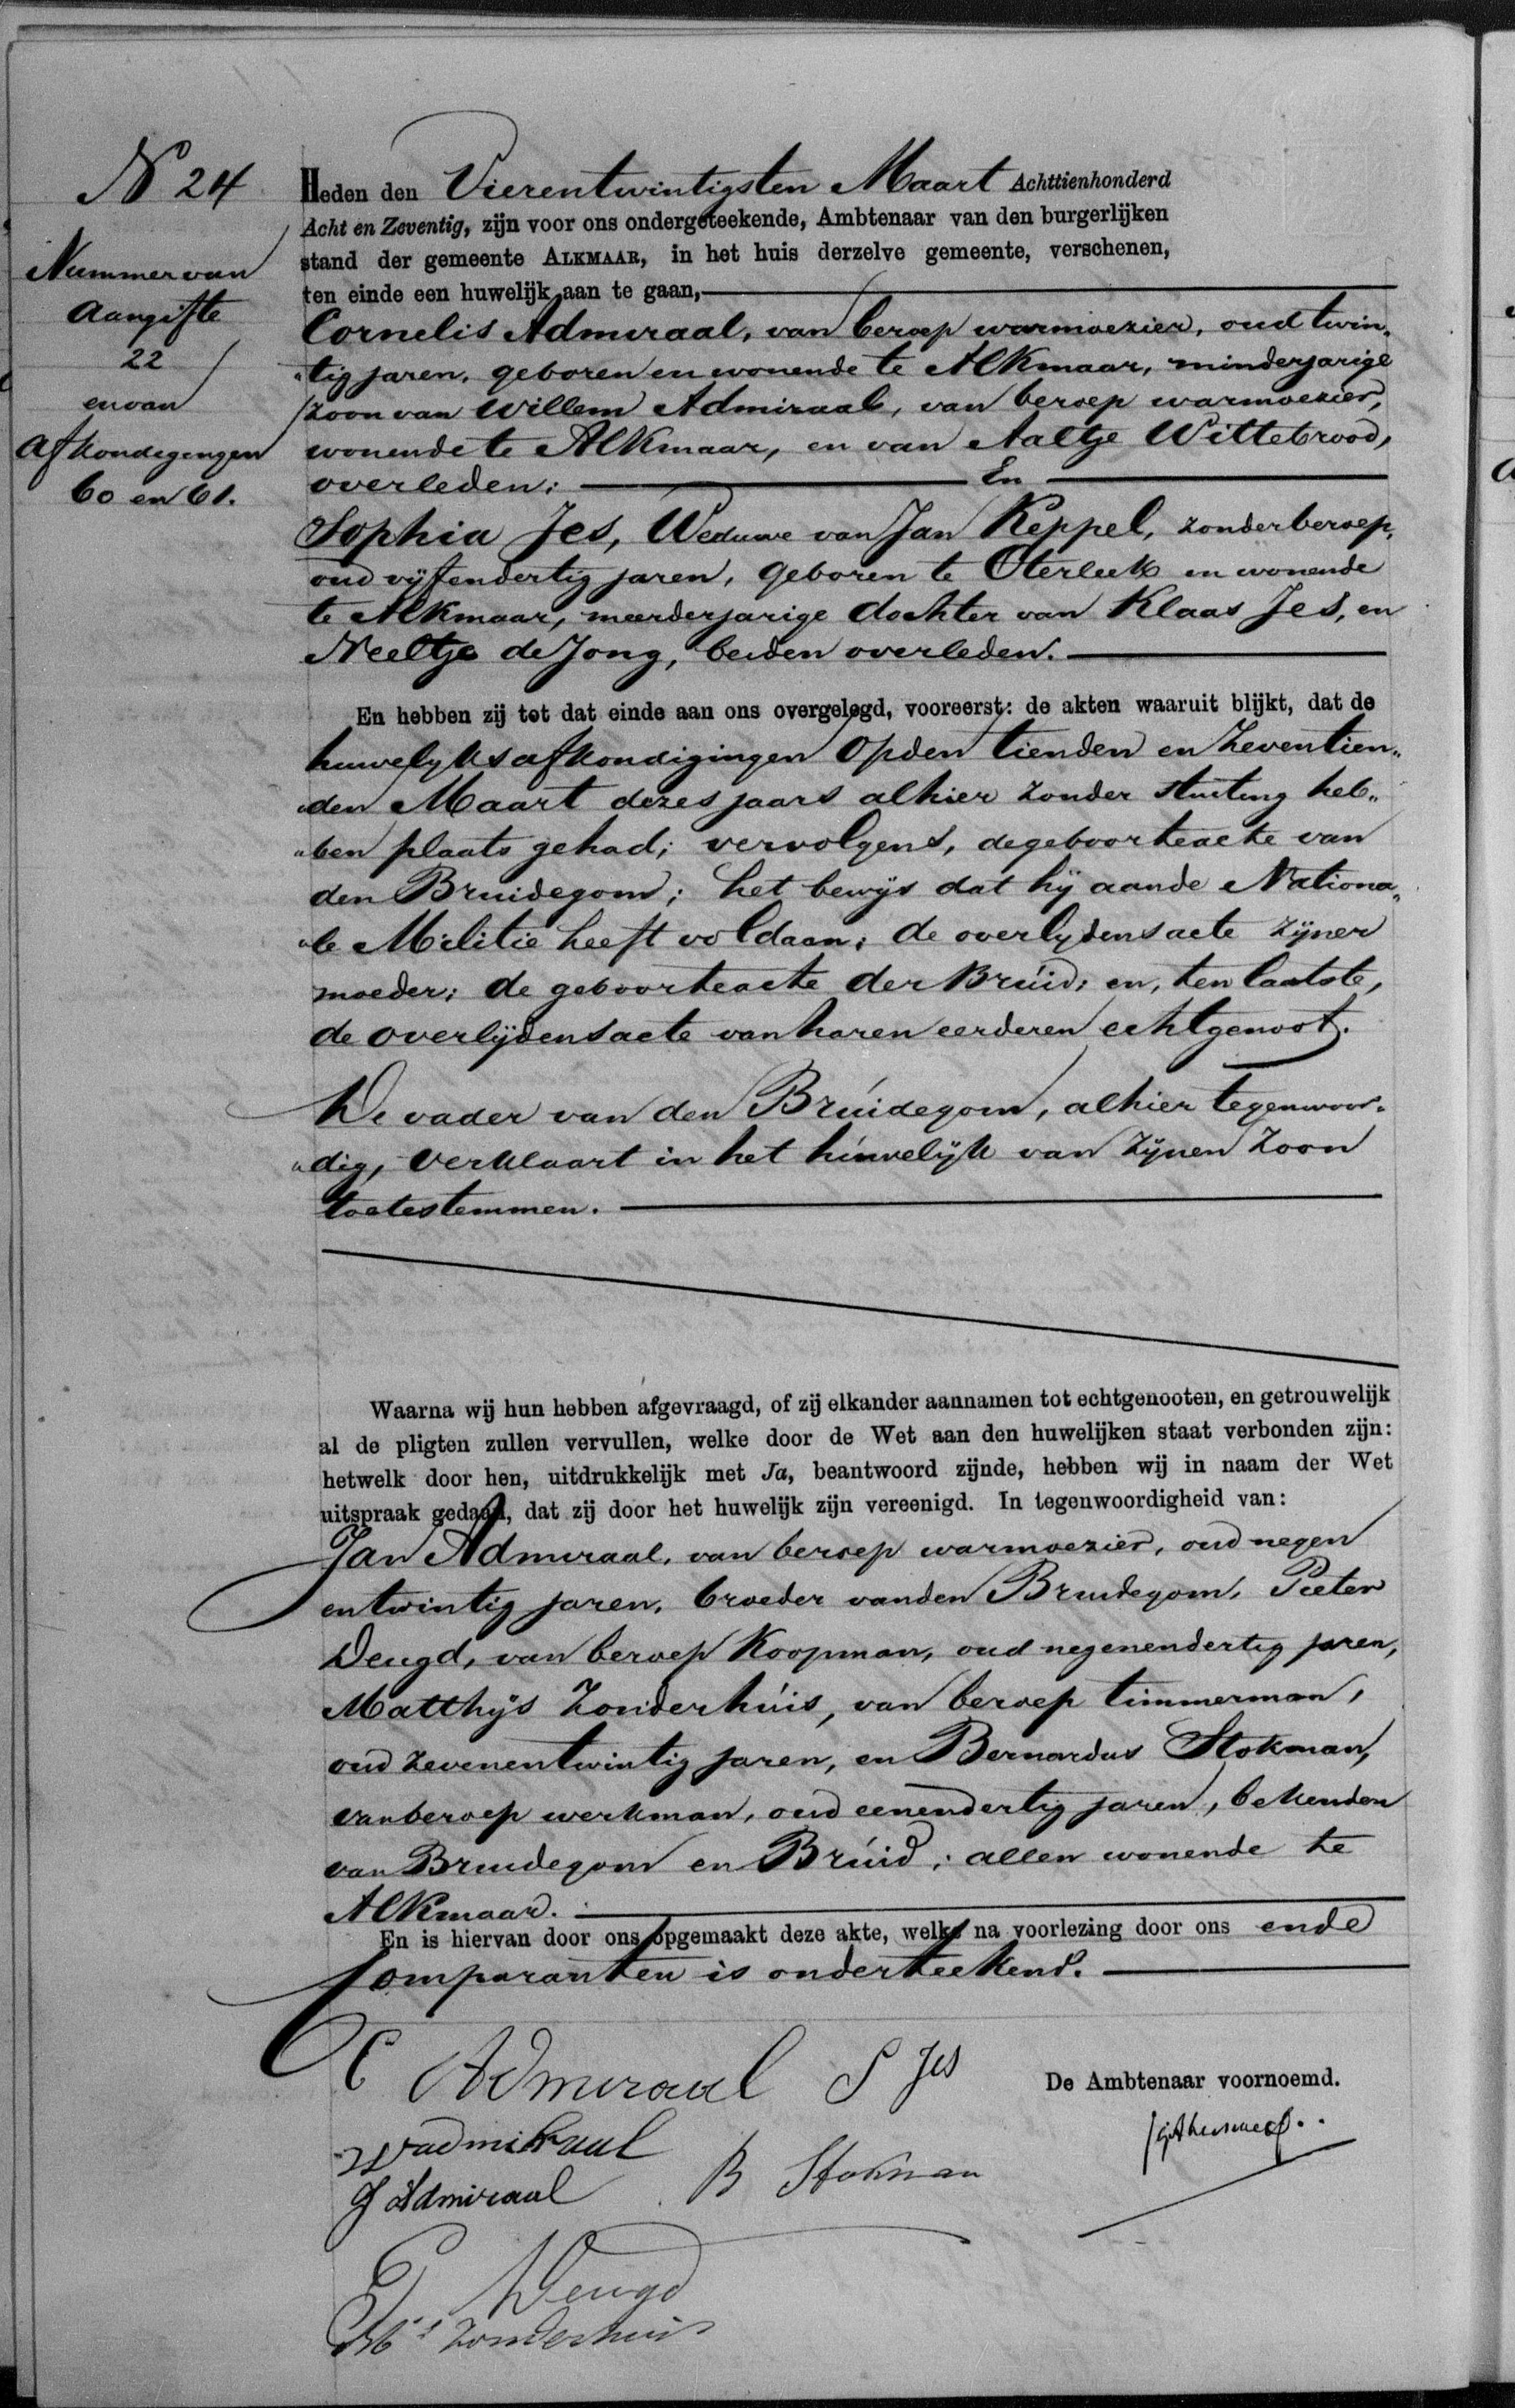 N 24
Nummer van
aangifte
22
en van
afkondegengen
60 en 61.
Heden den Vierentwintigsten Maart Achttienhonderd
Acht en Zeventig, zijn voor ons ondergeteekende, Ambtenaar van den burgerlijken
stand der gemeente ALKMAAR, in het huis derzelve gemeente, verschenen,
ten einde een huwelijk aan te gaan,
Cornelis Admiraal, van beroep warmoezier, oud twin„
„tig jaren, geboren en wonende te Alkmaar, minderjarige
zoon van Willem Admiraal, van beroep warmoezier,
wonende te Alkmaar, en van Aaltje Wittebrood,
overleden; En
Sophia Jes, Weduwe van Jan Keppel, zonder beroep,
oud vijfendertig jaren, geboren te Oterleek en wonende
te Alkmaar, meerderjarige dochter van Klaas Jes, en
Neeltje de Jong, beiden overleden.
En hebben zij tot dat einde aan ons overgelegd, vooreerst: de akten waaruit blijkt, dat de
huwelyksafkondigingen op den tienden en zeventien„
„den Maart dezes jaars alhier zonder stuiting heb„
„ben plaats gehad; vervolgens, de geboorteacte van
den Bruidegom; het bewijs dat hij aan de Nationa„
„le Militie heeft voldaan; de overlydensacte zijner
moeder; de geboorteacte der Bruid; en, ten laatste,
de overlijdensacte van haren eerderen echtgenoot.
De vader van den Bruidegom, alhier tegenwoor„
„dig, verklaart in het huwelijk van zijnen zoon
toetestemmen.
Waarna wij hun hebben afgevraagd, of zij elkander aannamen tot echtgenooten, en getrouwelijk
al de pligten zullen vervullen, welke door de Wet aan den huwelijken staat verbonden zijn:
hetwelk door hen, uitdrukkelijk met Ja, beantwoord zijnde, hebben wij in naam der Wet
uitspraak gedaan, dat zij door het huwelijk zijn vereenigd. In tegenwoordigheid van:
Jan Admiraal, van beroep warmoezier, oud negen
entwintig jaren, broeder van den Bruidegom, Pieter
Deugd, van beroep Koopman, oud negenendertig jaren,
Matthijs Zonderhuis, van beroep timmerman,
oud zevenentwintig jaren, en Bernardus Stokman,
van beroep werkman, oud eenendertig jaren, bekenden
van Bruidegom en Bruid; allen wonende te
Alkmaar.
En is hiervan door ons opgemaakt deze akte, welke na voorlezing door ons en de
Comparanten is onderteekend.
C Admiraal S Jes
De Ambtenaar voornoemd.
W admiraal
J Admiraal B Stokman
P Deugd
Ms Zonderhuis